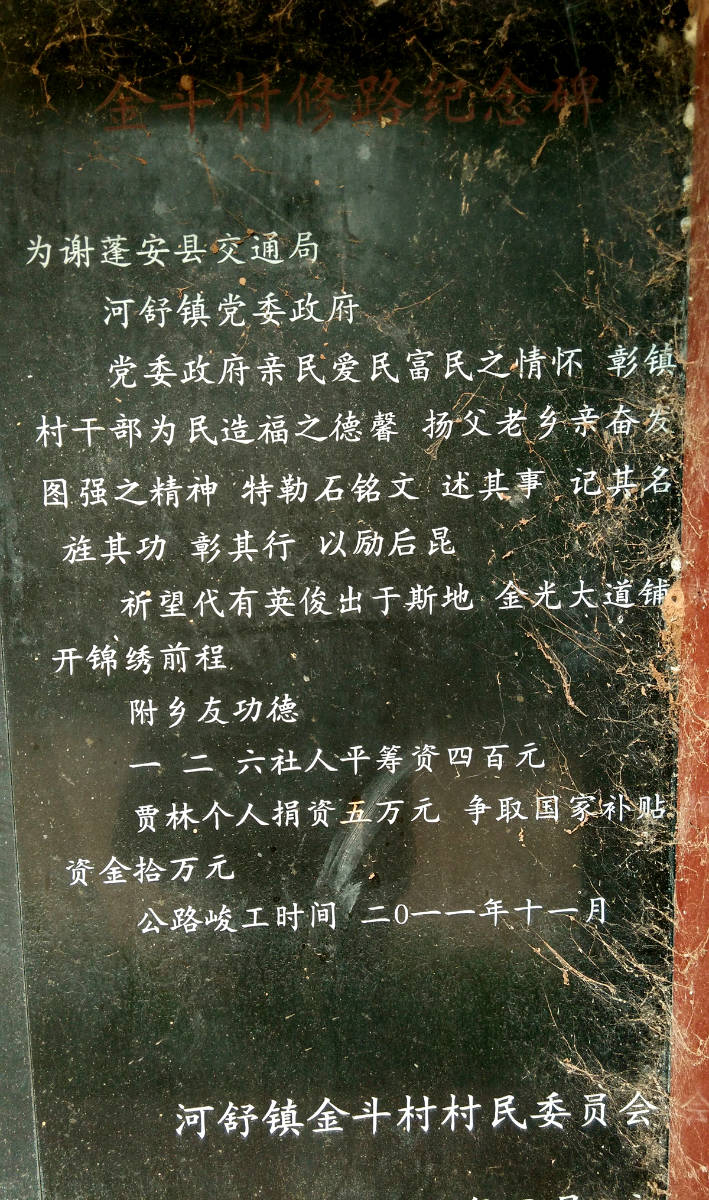 金斗村修路纪念碑
为谢蓬安县交通局
河舒镇党委政府
党委政府亲民爱民富民之情怀 彰镇
村干部为民造福之德馨 扬父老乡亲奋发
图强之精神 特勒石铭文 述其事 记其名
旌其功 彰其行 以励后昆
祈望代有英俊出于斯地 金光大道铺
开锦绣前程
附乡友功德
一 二 六社人平筹资四百元
贾林个人捐资五万元 争取国家补贴
资金拾万元
公路峻工时间 二0一一年十一月
河舒镇金斗村村民委员会